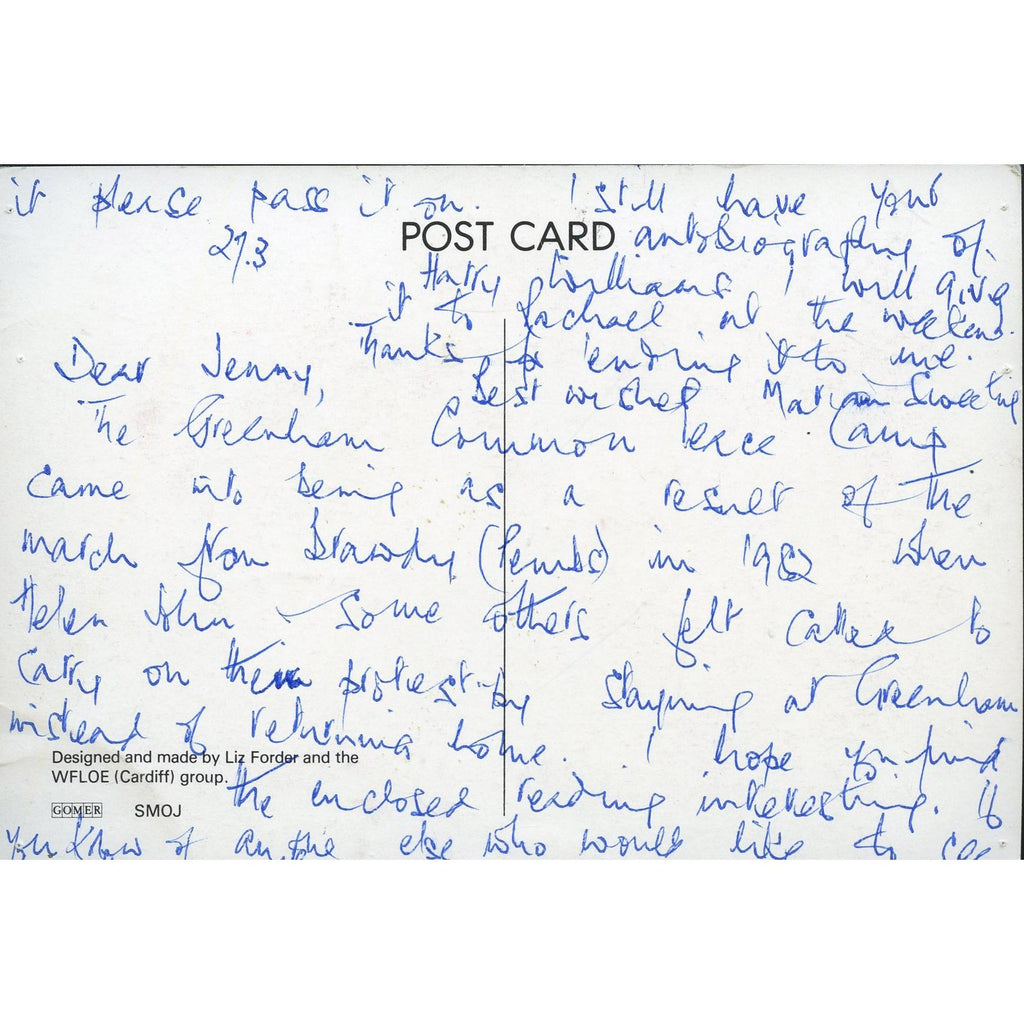 it please pass it on. I still have your
27.3
POST CARD
autobiography of
Harry Williams, I will give
it to Rachael at the weekend.
Thanks for lending it to me.
Best wishes Marian Sweeting
Dear Jenny,
The Greenham Common Peace Camp
came into being as a result of the
march from Brawdy (Pembs) in 1982 when
Helen John & some others felt called to
carry on their protest by staying at Greenham
instead of returning home. I hope you find
the enclosed reading interesting. If
you know of anyone else who would like to see
Designed and made by Liz Forder and the
WFLOE (Cardiff) group.
GOMER SMOJ